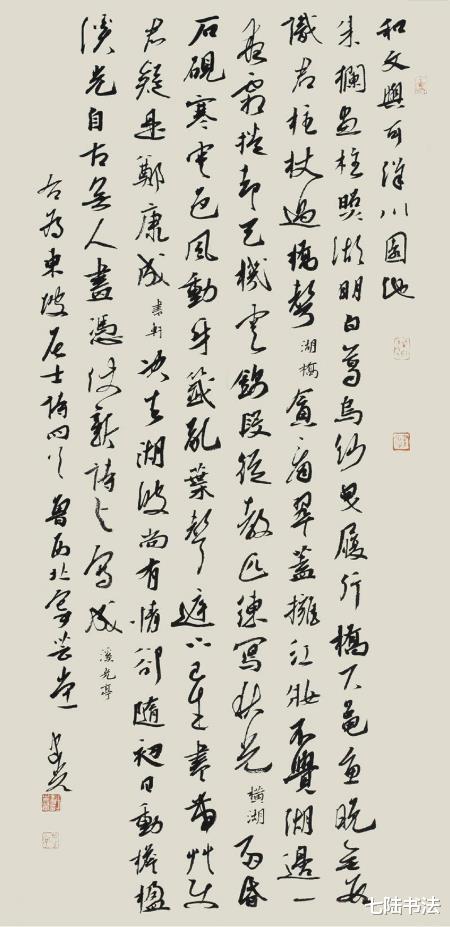 和文與可洋川園池
朱欄畫柱照湖明白葛烏紗曳履行橋下龜魚晚無數
識君拄杖過橋聲湖橋貪看翠蓋擁紅妝不覺湖邊一
夜霜捲却天機雲錦段從教匹練寫秋光橫湖雨昏
石硯寒雲色風動牙籤亂葉聲庭下已生書帶艸使
君疑是鄭康成書軒決去湖波尚有情卻隨初日動檐楹
溪光自古無人畫憑仗新詩與寫成溪光亭
右為東坡居士詩四首魯西北
七陆书法